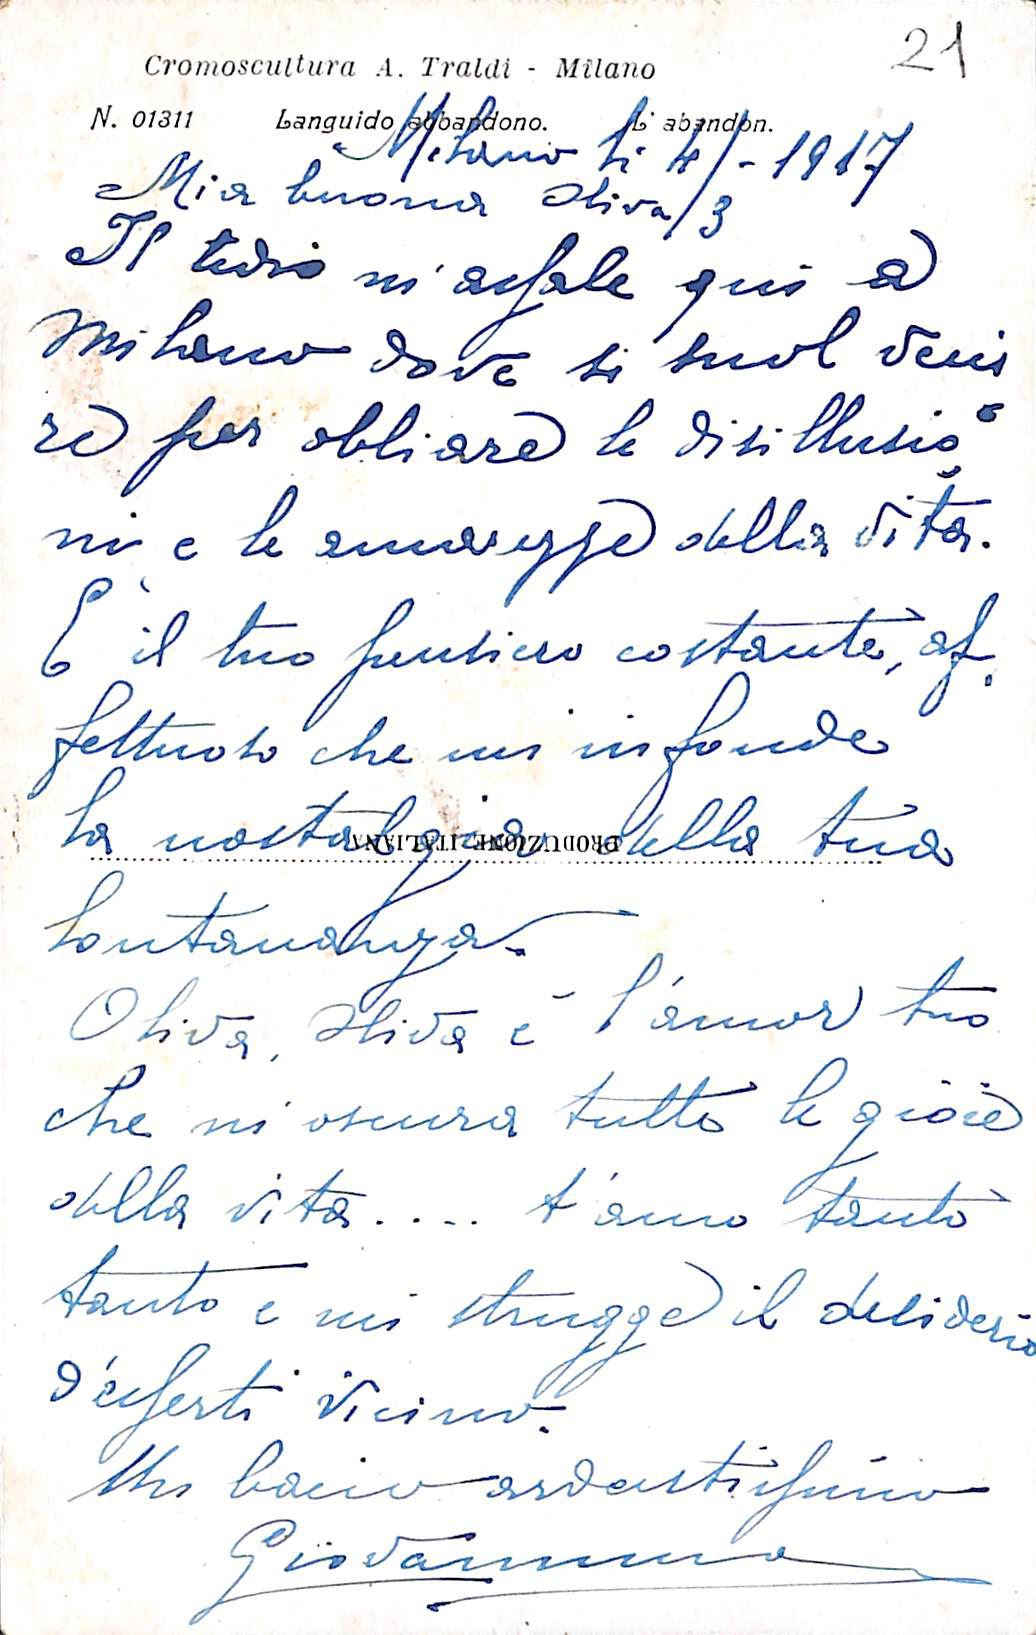 21
Cromoscultura A. Traldi - Milano
N. 01311 Languido abbandono. L'abandon.
Milano li 4/3 - 1917
Mia buona Oliva
Il tedio m'assale qui a
Milano dove si suol veni
re per obliare le disillusio
ni e le amarezze della vita.
È il tuo pensiero costante, af
fettuoso che mi infonde
la nostalgia della tua
PRODUZIONE ITALIANA
lontananza.
Oliva, Oliva è l'amor tuo
che m'oscura tutte le gioie
della vita.... t'amo tanto
tanto e mi strugge il desiderio
d'esserti vicino.
Un bacio ardentissimo
Giovannino